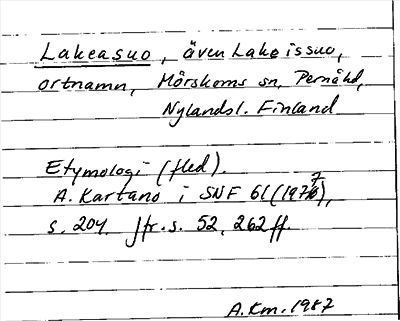 Lakeasuo, även Lakeissuo,
ortnamn, Mörskoms sn, Pernå hd,
Nylandsl. Finland
Etymologi (fled).
A. Kartano i SNF 61 (1977),
s. 204. Jfr. s. 52, 262 ff.
A.Km. 1987